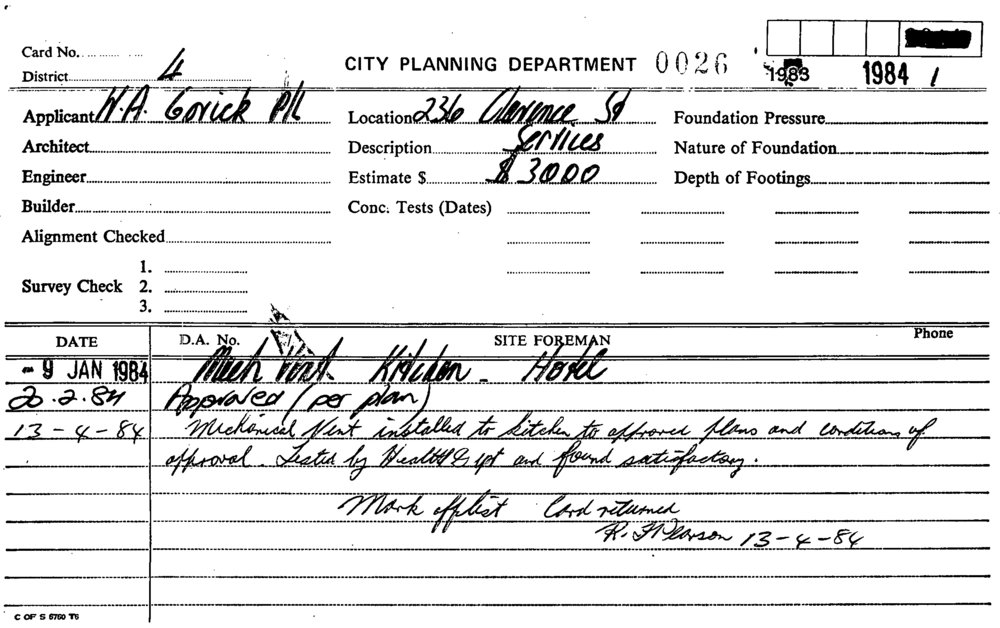 Card No.
District 4
CITY PLANNING DEPARTMENT 0026
1983 1984 1
Applicant W.A. Gorick P/L Location 236 Clarence St Foundation Pressure
Architect Description Services Nature of Foundation
Engineer Estimate $ $ 3000 Depth of Footings
Builder Conc. Tests (Dates)
Alignment Checked
1.
Survey Check 2.
3.
DATE D.A. No. SITE FOREMAN Phone
- 9 JAN 1984 Mech Vent. Kitchen - Hotel
20.2.84 Approved (per plan)
13-4-84 Mechanical Vent installed to kitchen to approved plans and conditions of
approval. Tested by Health Dept and found satisfactory.
Mark off list Card returned
R. Pearson 13-4-84
C OF S 5760 T6